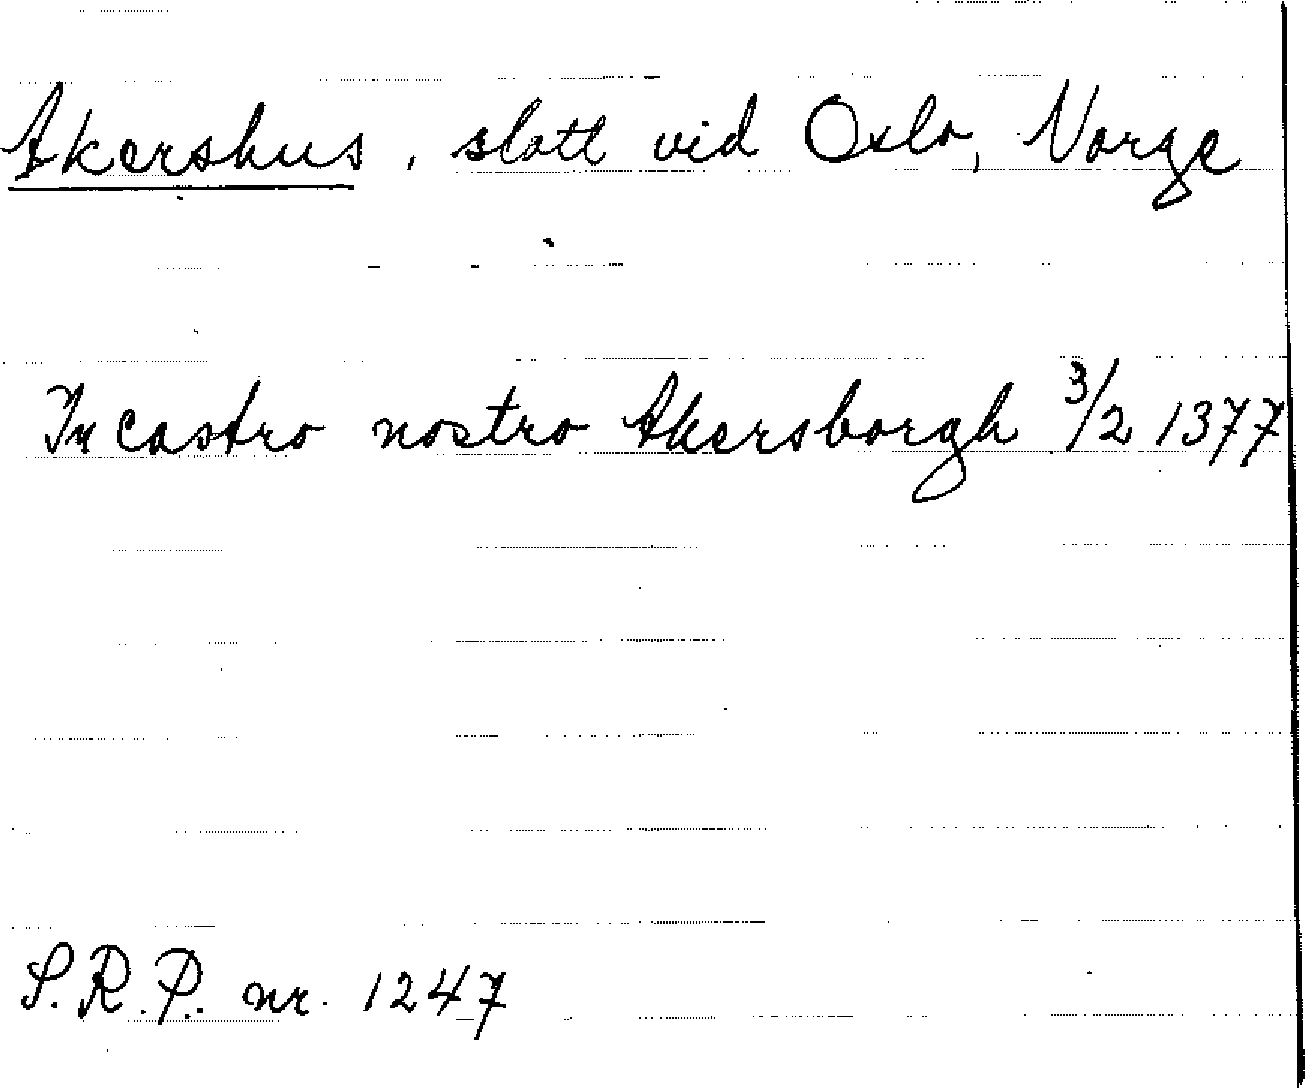 Akershus, slott vid Oslo, Norge
In castro nostro Akersborgh 3/2 1377
S.R.P. nr. 1247